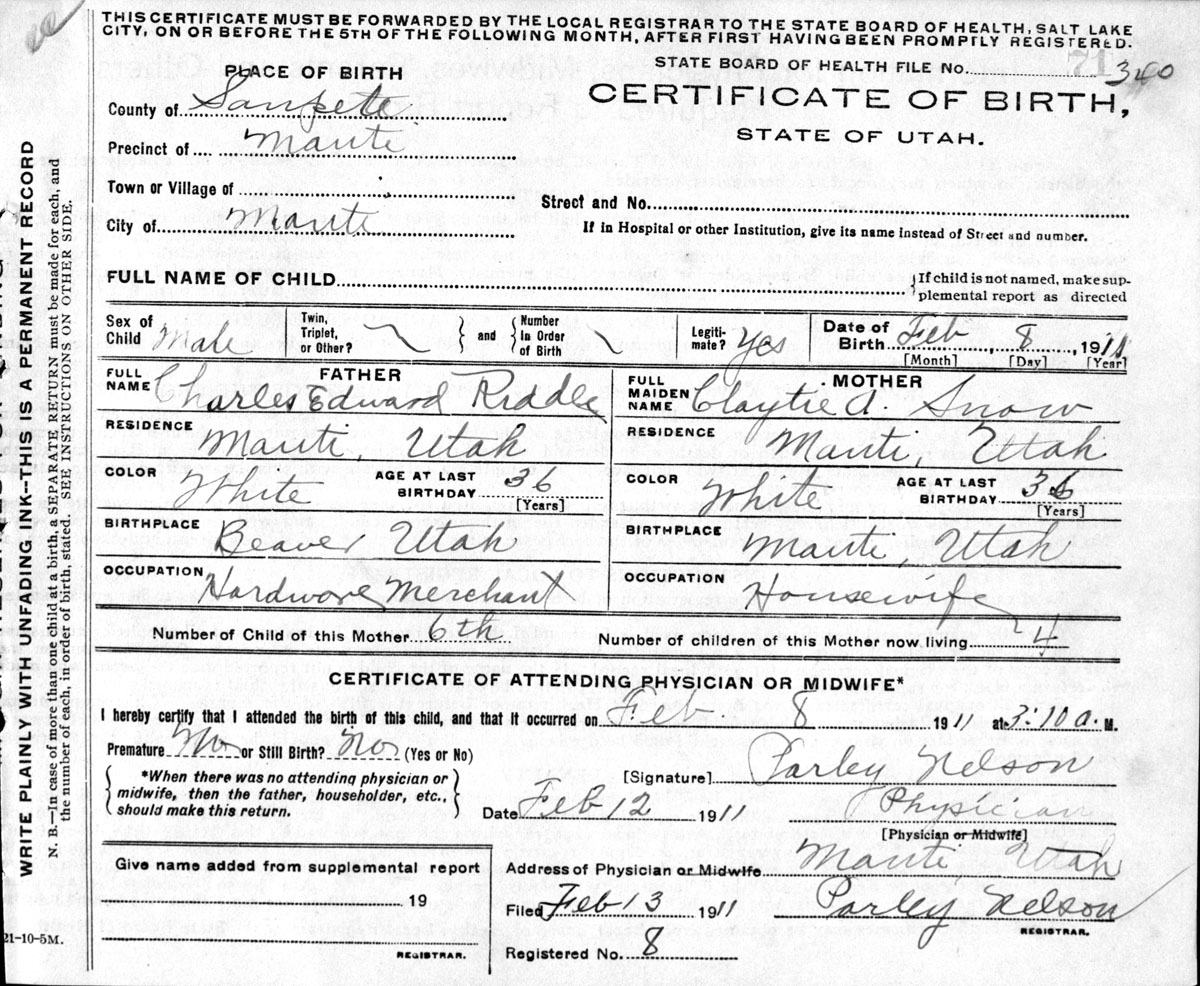 THIS CERTIFICATE MUST BE FORWARDED BY THE LOCAL REGISTRAR TO THE STATE BOARD OF HEALTH, SALT LAKE
CITY, ON OR BEFORE THE 5TH OF THE FOLLOWING MONTH, AFTER FIRST HAVING BEEN PROMPTLY REGISTERED.
STATE BOARD OF HEALTH FILE No. 71 340
PLACE OF BIRTH
CERTIFICATE OF BIRTH,
STATE OF UTAH.
County of Sanpete
Precinct of Manti
Town or Village of
Street and No.
City of Manti
If in Hospital or other Institution, give its name instead of Street and number.
FULL NAME OF CHILD
{If child is not named, make sup-
plemental report as directed
Sex of Child Male Twin, Triplet, or Other? } and { Number In Order of Birth Legiti- mate? Yes Date of Birth Feb, 8, 1911
[Month] [Day] [Year]
FATHER
MOTHER
FULL NAME Charles Edward Riddle
FULL MAIDEN NAME Claytie A. Snow
RESIDENCE Manti, Utah
RESIDENCE Manti, Utah
COLOR White AGE AT LAST BIRTHDAY 36 [Years]
COLOR White AGE AT LAST BIRTHDAY 36 [Years]
BIRTHPLACE Beaver Utah
BIRTHPLACE Manti, Utah
OCCUPATION Hardware Merchant
OCCUPATION Housewife
Number of Child of this Mother 6th Number of children of this Mother now living 4
CERTIFICATE OF ATTENDING PHYSICIAN OR MIDWIFE*
I hereby certify that I attended the birth of this child, and that it occurred on Feb. 8 1911 at 3-10 a. M.
Premature No or Still Birth? No (Yes or No)
{ *When there was no attending physician or
midwife, then the father, householder, etc.,
should make this return. }
[Signature] Parley Nelson
Date Feb 12 1911 Physician
[Physician or Midwife]
Give name added from supplemental report
19
REGISTRAR.
Address of Physician or Midwife Manti, Utah
Filed Feb 13 1911 Parley Nelson
REGISTRAR.
Registered No. 8
21-10-5M.
WRITE PLAINLY WITH UNFADING INK—THIS IS A PERMANENT RECORD
N. B.—In case of more than one child at a birth, a SEPARATE RETURN must be made for each, and
the number of each, in order of birth, stated. SEE INSTRUCTIONS ON OTHER SIDE.